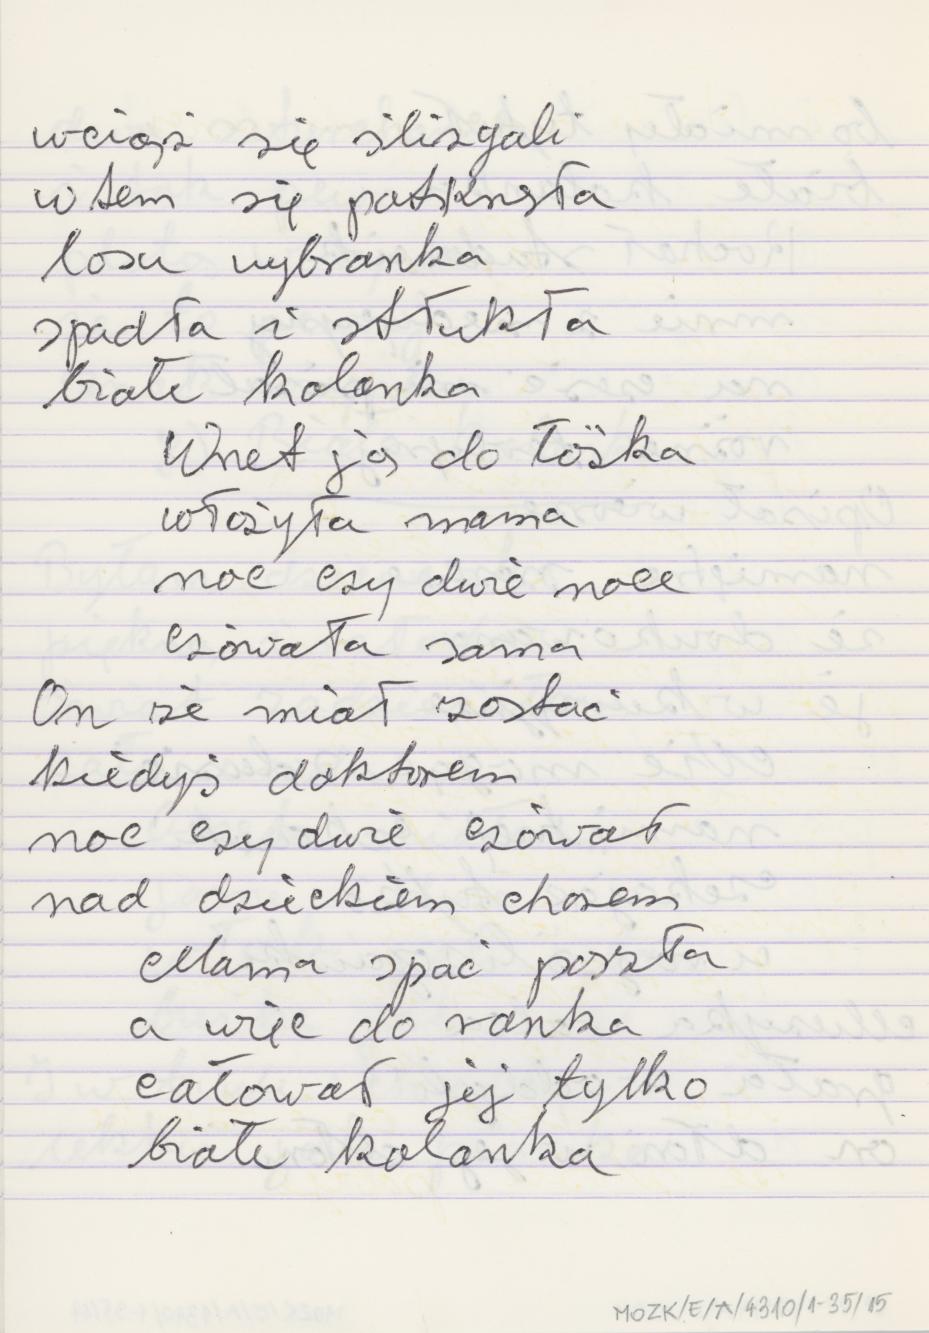 wciąsi się slisgali
wtem się patknęła
losu wybranka
spadła i stłukła
białe kolanka
Wnet ją do łöżka
włożyła mama
noc czy dwie noce
czówała sama
On że miał zostać
kiedyś doktorem
noc czy dwie czówał
nad dzieckiem chorem
Mama spać poszła
a więc do ranka
całował jej tylko
białe kolanka
MOZK/E/A/4310/1-35/15